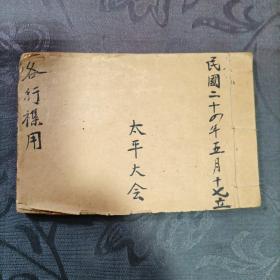 民國二十四年五月十七立
太平大会
各行襍用